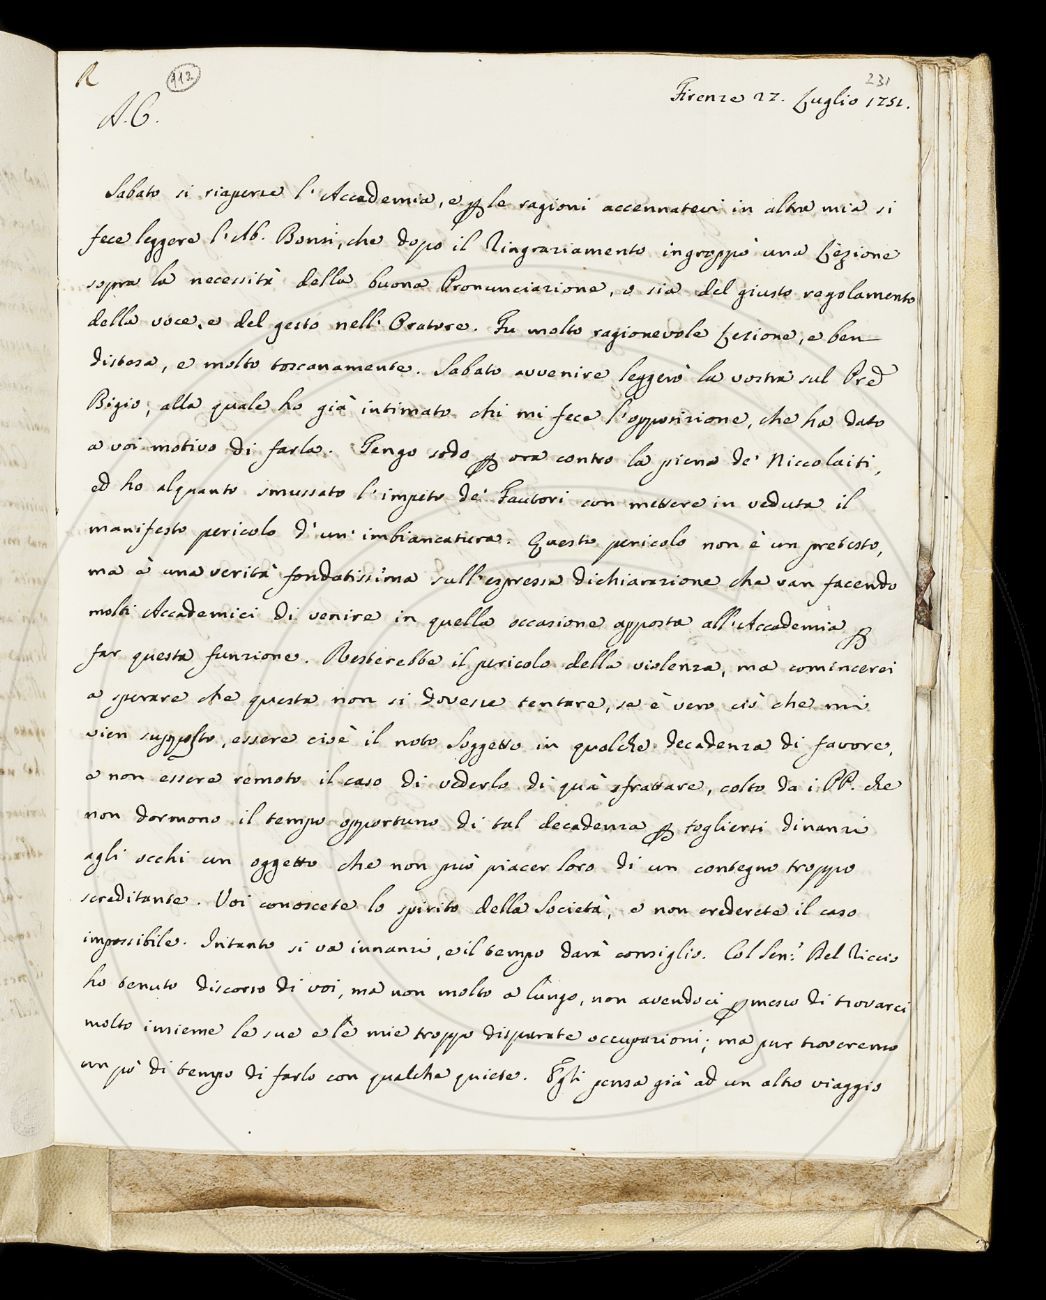 R
112
231
A. C.
Firenze 27. Luglio 1751.
Sabato si riaperse l'Accademia, e p le ragioni accennatevi in altra mia si
fece leggere l'Ab. Bonsi, che dopo il Ringraziamento ingroppò una Lezione
sopra la necessità della buona Pronunciazione, o sia del giusto regolamento
della voce, e del gesto nell'Oratore. Fu molto ragionevole Lezione, e ben
distesa, e molto toscanamente. Sabato avvenire leggerò la vostra sul
Bigio, alla quale ho già intimato chi mi fece l'opposizione, che ha dato
a voi motivo di farla. Tengo sodo p ora contro la piena de' Niccolaiti,
ed ho alquanto smussato l'impeto de' Fautori con mettere in veduta il
manifesto pericolo d'un' imbiancatura. Questo pericolo non è un pretesto,
ma è una verità fondatissima sull'espressa dichiarazione che van facendo
molti Accademici di venire in quella occasione apposta all'Accademia p
far questa funzione. Resterebbe il pericolo della violenza, ma comincerei
a sperare che questa non si dovesse tentare, se è vero ciò che mi
vien supposto, essere cioè il noto Soggetto in qualche decadenza di favore,
e non essere remoto il caso di vederlo di quà sfrattare, colto da i PP. che
non dormono il tempo opportuno di tal decadenza p togliersi dinanzi
agli occhi un oggetto che non può piacer loro di un contegno troppo
screditante. Voi conoscete lo spirito della Società, e non crederete il caso
impossibile. Intanto si va innanzi, e il tempo darà consiglio. Col Sen.r Del Riccio
ho tenuto discorso di voi, ma non molto a lungo, non avendoci pmesso di trovarci
molto insieme le sue e le mie troppo disparate occupazioni; ma pur troveremo
un pò di tempo di farlo con qualche quiete. Egli pensa già ad un altro viaggio